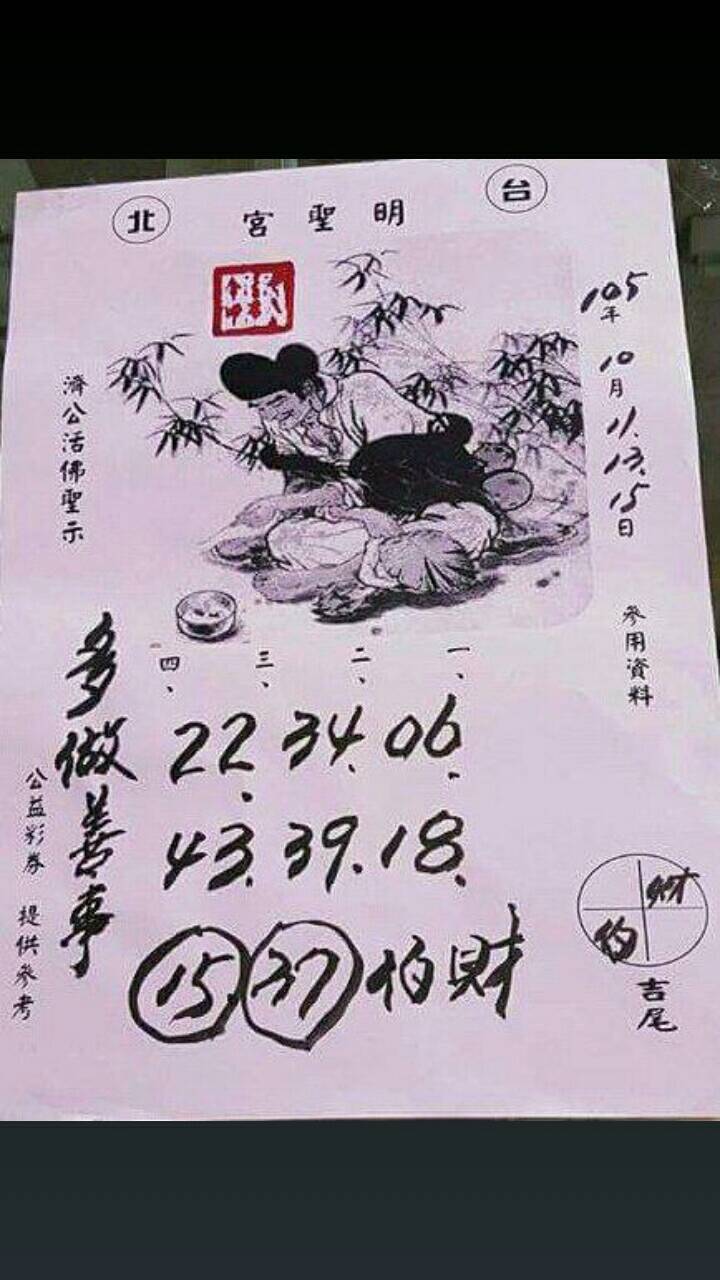 台北
明聖宮
105年10月11.13.15日
參用資料
濟公活佛聖示
一、二、三、四、
06. 34. 22.
18. 39. 43.
財伯 37 15
多做善事
公益彩券 提供參考
財
伯
吉尾